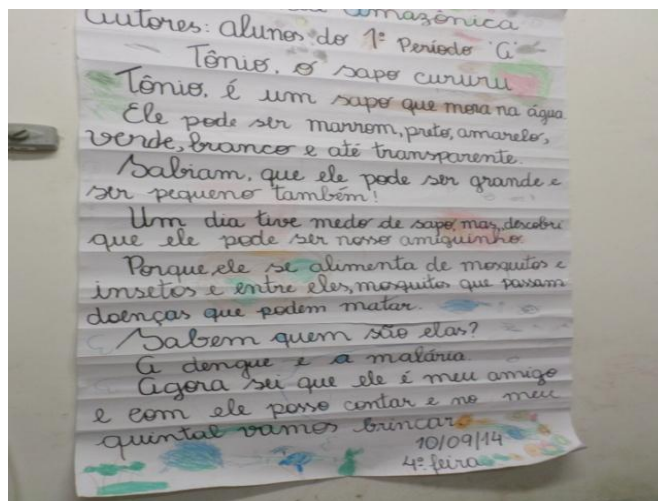 Amazônica
Autores: alunos do 1º Período "A"
Tônio, o sapo cururu
Tônio, é um sapo que mora na água.
Ele pode ser marrom, preto, amarelo,
verde, branco e até transparente.
Sabiam, que ele pode ser grande e
ser pequeno também!
Um dia tive medo de sapo, mas, descobri
que ele pode ser nosso amiguinho.
Porque, ele se alimenta de mosquitos e
insetos e entre eles, mosquitos que passam
doenças que podem matar.
Sabem quem são elas?
A dengue e a malária.
Agora sei que ele é meu amigo
e com ele posso contar e no meu
quintal vamos brincar.
10/09/14
4ª feira